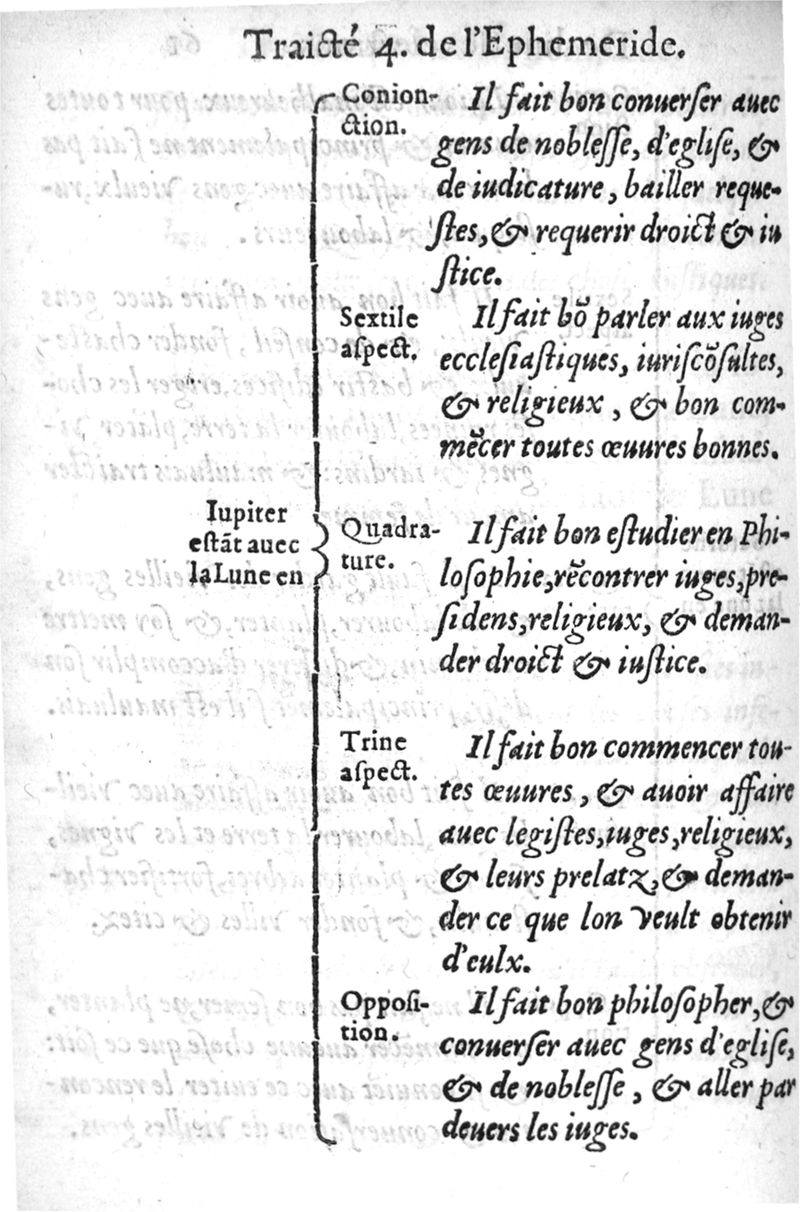 Traicté 4. de l'Ephemeride.
Iupiter
estāt auec
la Lune en
Conion-
ction.
Il fait bon conuerser auec
gens de noblesse, d'eglise, &
de iudicature, bailler reque-
stes, & requerir droict & iu
stice.
Sextile
aspect.
Il fait bō parler aux iuges
ecclesiastiques, iuriscōsultes,
& religieux, & bon com-
mēcer toutes œuures bonnes.
Quadra-
ture.
Il fait bon estudier en Phi-
losophie, rēcontrer iuges, pre-
sidens, religieux, & deman-
der droict & iustice.
Trine
aspect.
Il fait bon commencer tou-
tes œuures, & auoir affaire
auec legistes, iuges, religieux,
& leurs prelatz, & deman-
der ce que lon veult obtenir
d'eulx.
Opposi-
tion.
Il fait bon philosopher, &
conuerser auec gens d'eglise,
& de noblesse, & aller par
deuers les iuges.